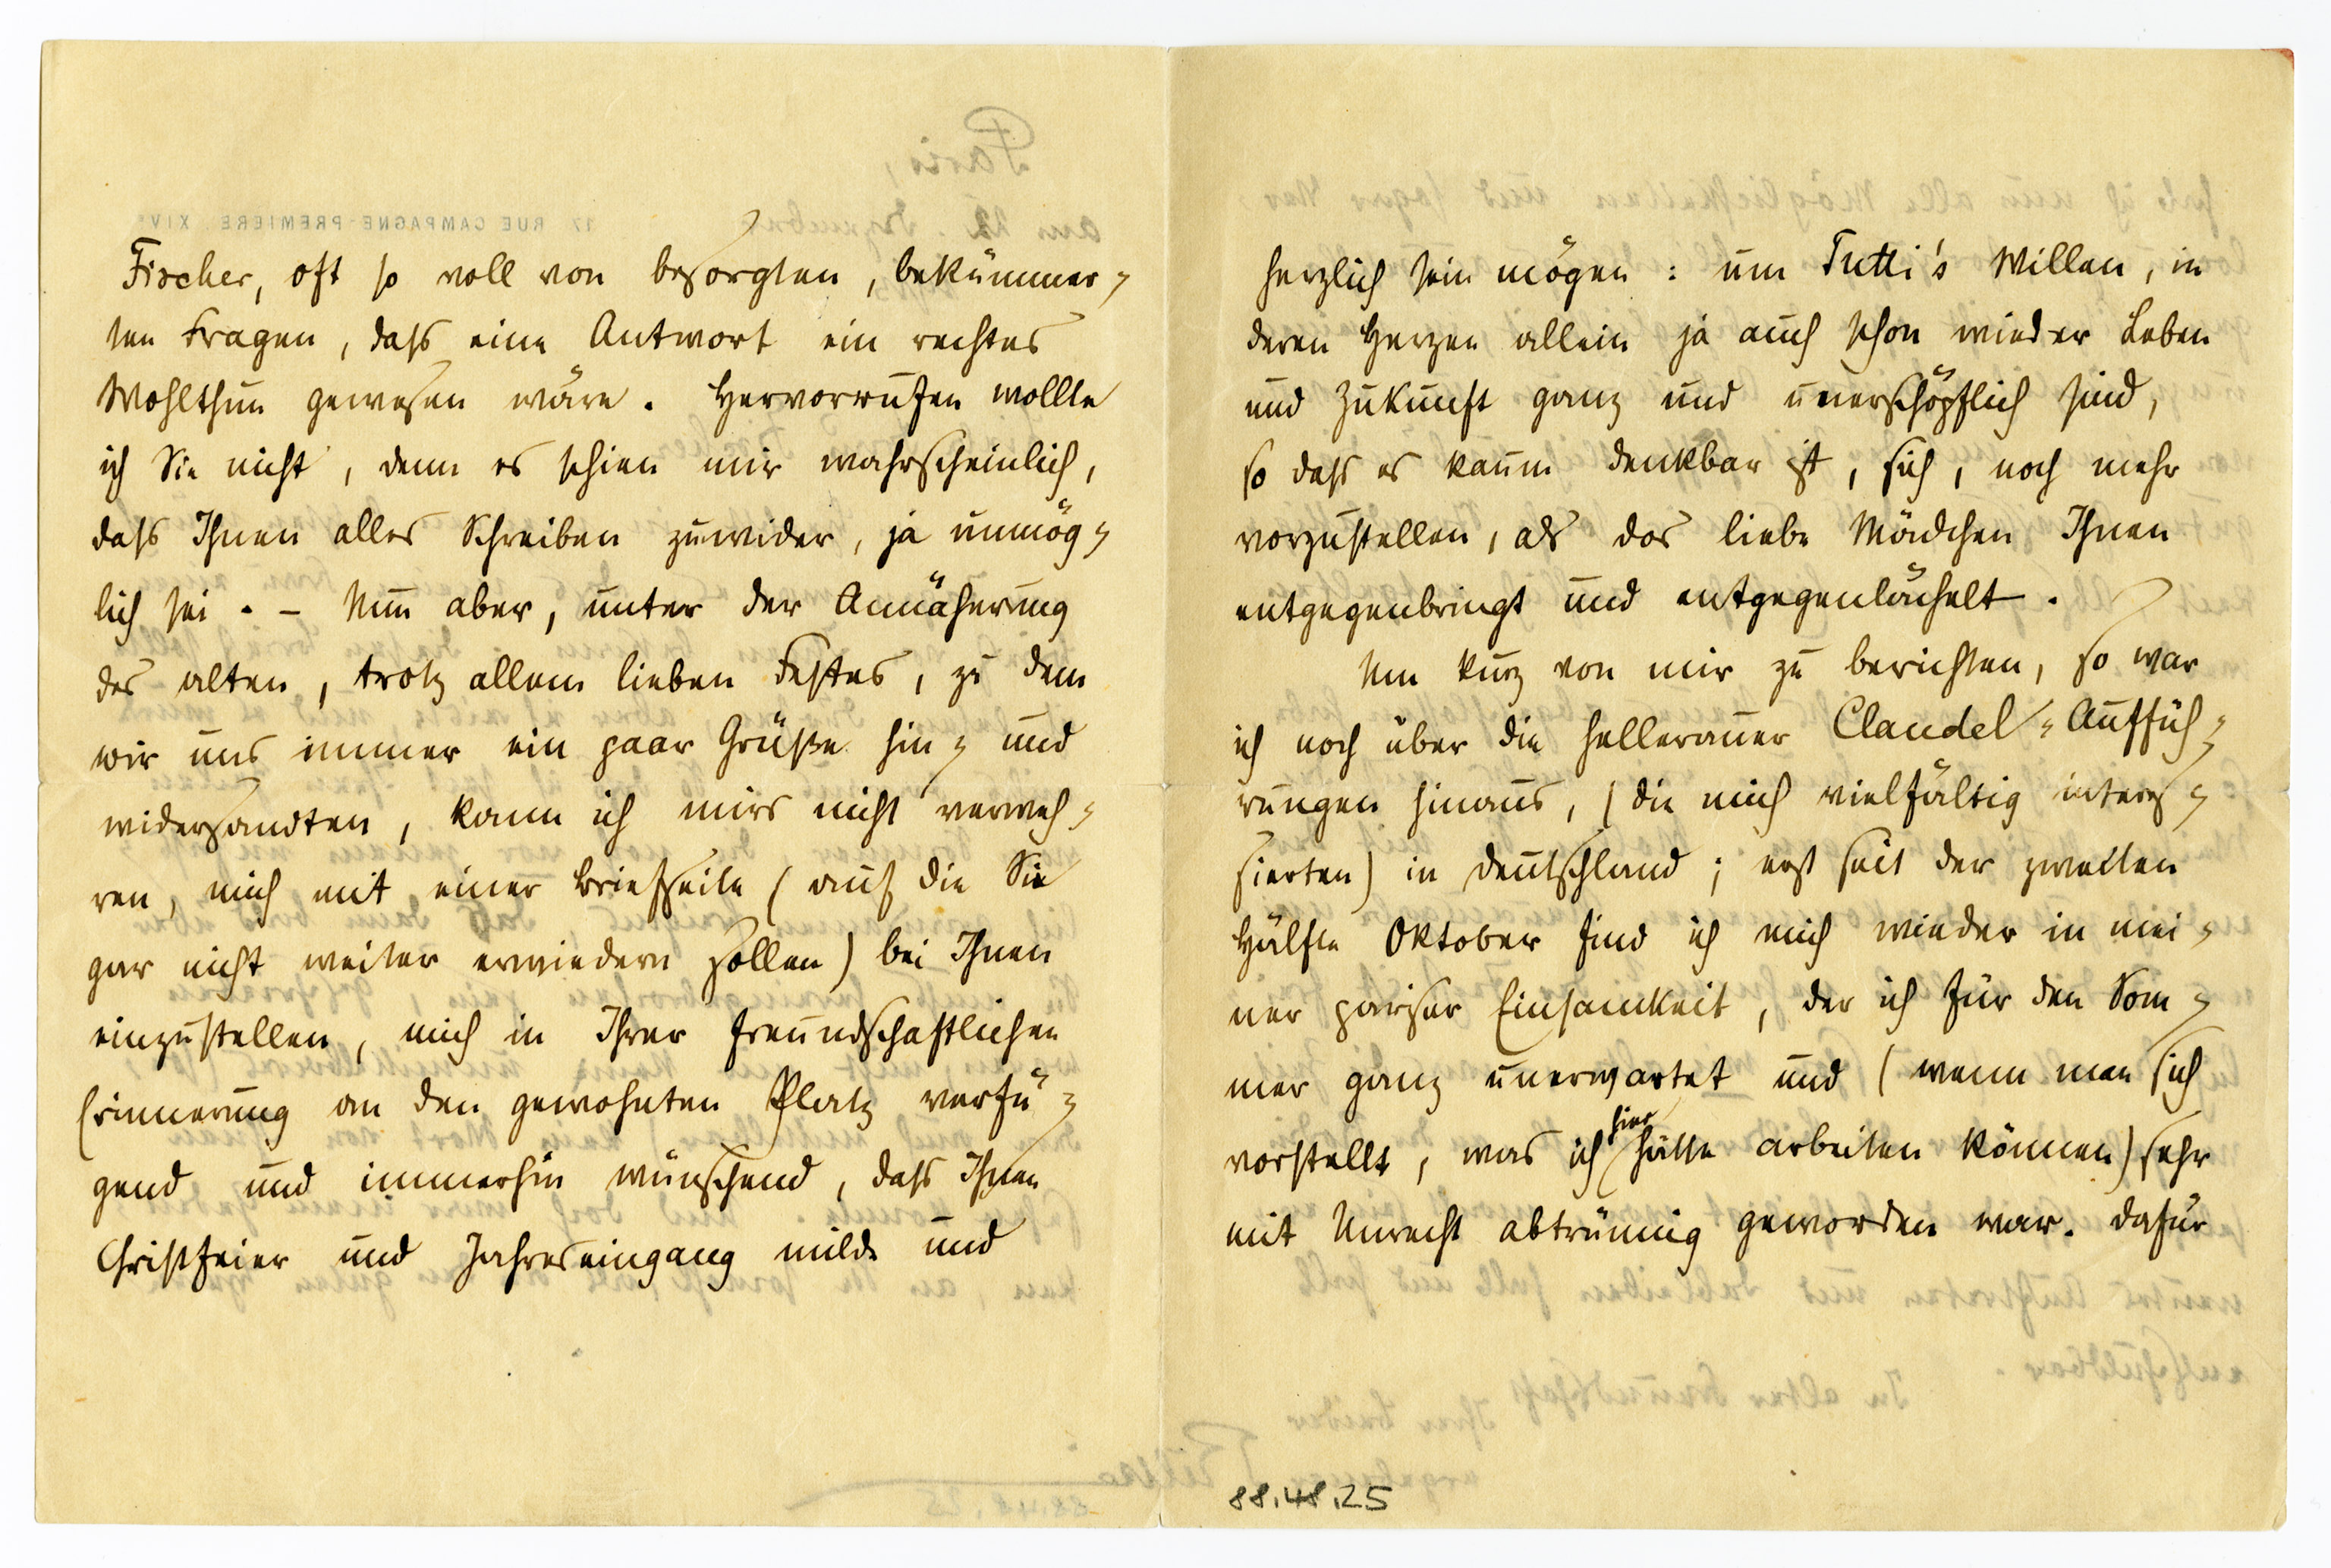 Fischer, oft so voll von besorgten, bekümmer-
ten Fragen, dass eine Antwort ein rechtes
Wohlthun gewesen wäre. Hervorrufen wollte
ich Sie nicht, denn es schien mir wahrscheinlich,
dass Ihnen alles Schreiben zuwider, ja unmög-
lich sei. – Nun aber, unter der Annäherung
des alten, trotz allem lieben Festes, zu dem
wir uns immer ein paar Grüße hin- und
widersandten, kann ich mirs nicht verweh-
ren, mich mit einer Briefzeile (auf die Sie
gar nicht weiter erwiedern sollen) bei Ihnen
einzustellen, mich in Ihrer freundschaftlichen
Erinnerung an den gewohnten Platz verfü-
gend und immerhin wünschend, dass Ihnen
Christfeier und Jahreseingang milde und
herzlich sein mögen: um Tutti's Willen, in
deren Herzen allein ja auch schon wieder Leben
und Zukunft ganz und unerschöpflich sind,
so dass es kaum denkbar ist, sich, noch mehr
vorzustellen, als das liebe Mädchen Ihnen
entgegenbringt und entgegenlächelt.
Um kurz von mir zu berichten, so war
ich noch über die hellerauer Claudel-Auffüh-
rungen hinaus, (die mich vielfältig interes-
sierten) in Deutschland; erst seit der zweiten
Hälfte Oktober find ich mich wieder in mei-
ner pariser Einsamkeit, der ich für den Som-
mer ganz unerwartet und (wenn man sich
vorstellt, was ich hier hätte arbeiten können) sehr
mit Unrecht abtrünnig geworden war. Dafür
88.48.25